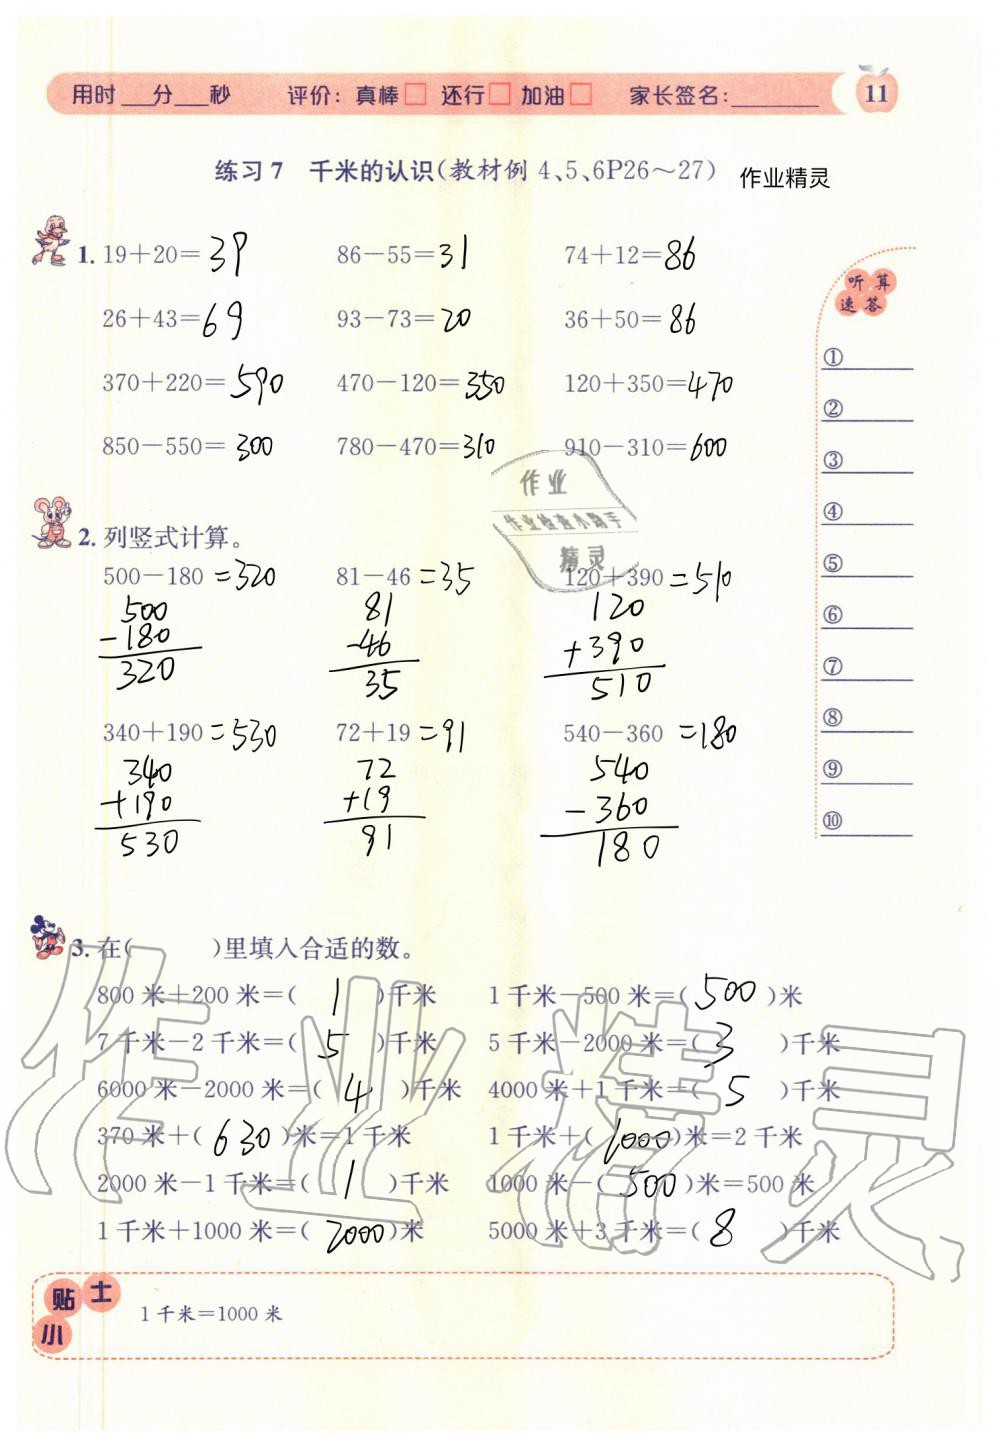 用时___分___秒 评价：真棒□ 还行□ 加油□ 家长签名：________ 11
练习7 千米的认识(教材例4、5、6P26～27) 作业精灵
1. 19+20=39 86-55=31 74+12=86
26+43=69 93-73=20 36+50=86
370+220=590 470-120=350 120+350=470
850-550=300 780-470=310 910-310=600
听算
速答
①
②
③
④
⑤
⑥
⑦
⑧
⑨
⑩
作业
作业检查小助手
精灵
2. 列竖式计算。
500-180=320 81-46=35 120+390=510
500 81 120
-180 -46 +390
320 35 510
340+190=530 72+19=91 540-360=180
340 72 540
+190 +19 -360
530 91 180
3. 在( )里填入合适的数。
800米+200米=( 1 )千米 1千米-500米=( 500 )米
7千米-2千米=( 5 )千米 5千米-2000米=( 3 )千米
6000米-2000米=( 4 )千米 4000米+1千米=( 5 )千米
370米+( 630 )米=1千米 1千米+( 1000 )米=2千米
2000米-1千米=( 1 )千米 1000米-( 500 )米=500米
1千米+1000米=( 2000 )米 5000米+3千米=( 8 )千米
作业精灵
小贴士
1千米=1000米